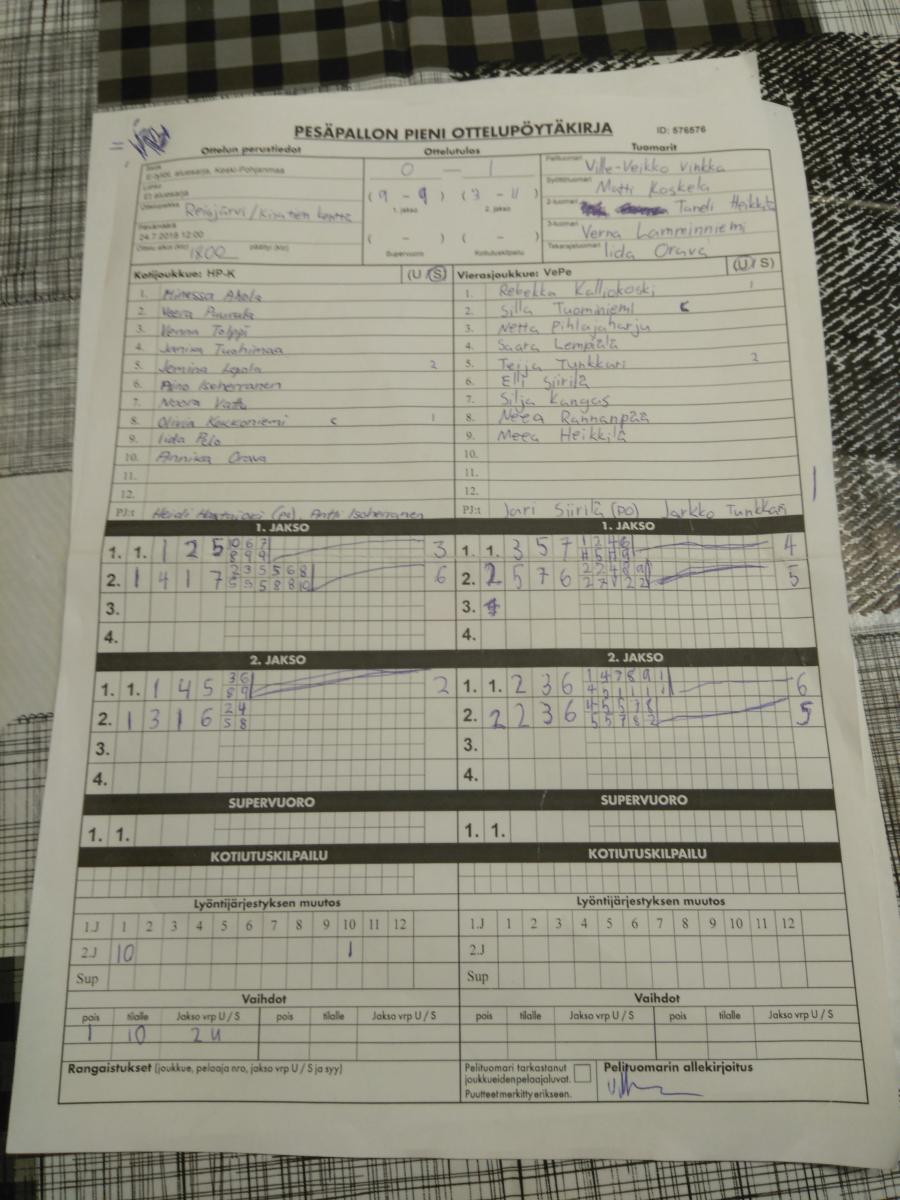 PESÄPALLON PIENI OTTELUPÖYTÄKIRJA ID: 576576
Ottelun perustiedot Ottelutulos Tuomarit
E-tytöt, aluesarja, Keski-Pohjanmaa
0 – 1
Pelituomari Ville-Veikko Vinkka
Et aluesarja
(9 - 9) (3 - 11)
1. jakso 2. jakso
Syöttötuomari Matti Koskela
Ottelupaikka Reisjärvi/Kisatien kenttä
2-tuomari Taneli Heikkilä
Päivämäärä
24.7.2018 12:00
( - ) ( - )
3-tuomari Verna Lamminniemi
Ottelu alkoi (klo) 1800 päättyi (klo)
Supervuoro Kotiutuskilpailu
Takarajatuomari Iida Orava
Kotijoukkue: HP-K (U / S) Vierasjoukkue: VePe (U / S)
1. Minessa Ahola 1. Rebekka Kalliokoski 1
2. Veera Puurula 2. Silla Tuominiemi C
3. Venna Tolppi 3. Netta Pihlajaharju
4. Janika Tuohimaa 4. Saara Lempälä
5. Jemina Lepola 2 5. Teija Tunkkari 2
6. Aino Isoherranen 6. Elli Siirilä
7. Noora 7. Silja Kangas
8. Olivia Kokkoniemi C 1 8. Neea Rannanpää
9. Iida Pelo 9. Meea Heikkilä
10. Annika Orava 10.
11. 11.
12. 12.
PJ:t Heidi (PJ), Antti Isoherranen PJ:t Jari Siirilä (PO) Jarkko Tunkkari
1. JAKSO 1. JAKSO
1. 1. 1 2 5 10 6 7 8 9 9 3 1. 1. 3 5 7 1 2 4 6 4
2. 1 4 1 7 2 3 5 5 6 8 5 5 5 8 8 10 6 2. 2 5 7 6 2 2 4 8 9 5
3. 3.
4. 4.
2. JAKSO 2. JAKSO
1. 1. 1 4 5 3 6 8 9 2 1. 1. 2 3 6 1 4 7 8 9 1 6
2. 1 3 1 6 2 4 5 8 2. 2 2 3 6 4 5 5 7 8 5 5 7 8 2 5
3. 3.
4. 4.
SUPERVUORO SUPERVUORO
1. 1. 1. 1.
KOTIUTUSKILPAILU KOTIUTUSKILPAILU
Lyöntijärjestyksen muutos Lyöntijärjestyksen muutos
1.J 1 2 3 4 5 6 7 8 9 10 11 12 1.J 1 2 3 4 5 6 7 8 9 10 11 12
2.J 10 1 2.J
Sup Sup
Vaihdot Vaihdot
pois tilalle Jakso vrp U / S pois tilalle Jakso vrp U / S pois tilalle Jakso vrp U / S pois tilalle Jakso vrp U / S
1 10 2U
Rangaistukset (joukkue, pelaaja nro, jakso vrp U / S ja syy)
Pelituomari tarkastanut
joukkueiden pelaajaluvat.
Puutteet merkitty erikseen.
Pelituomarin allekirjoitus